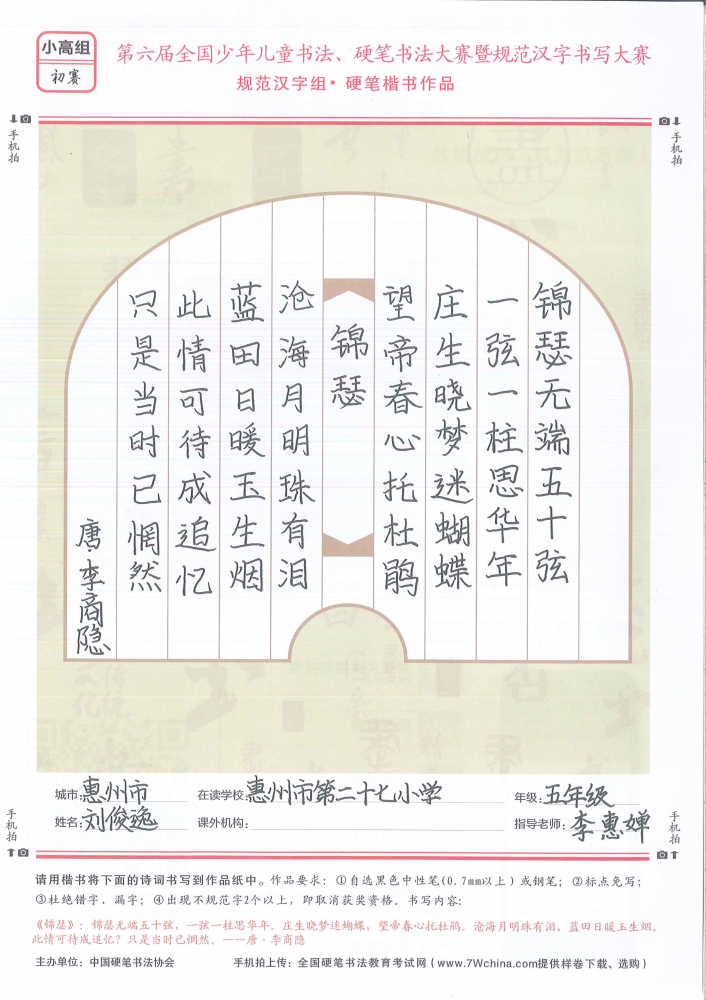 小高组
初赛
第六届全国少年儿童书法、硬笔书法大赛暨规范汉字书写大赛
规范汉字组·硬笔楷书作品
手机拍
手机拍
锦瑟无端五十弦
一弦一柱思华年
庄生晓梦迷蝴蝶
望帝春心托杜鹃
锦瑟
沧海月明珠有泪
蓝田日暖玉生烟
此情可待成追忆
只是当时已惘然
唐·李商隐
城市:惠州市
在读学校:惠州市第二十七小学
年级:五年级
姓名:刘俊逸
课外机构:
指导老师:李惠婵
手机拍
手机拍
请用楷书将下面的诗词书写到作品纸中。作品要求：①自选黑色中性笔(0.7mm以上）或钢笔；②标点免写；
③杜绝错字、漏字；④出现不规范字2个以上，即取消获奖资格。书写内容:
《锦瑟》：锦瑟无端五十弦，一弦一柱思华年。庄生晓梦迷蝴蝶，望帝春心托杜鹃。沧海月明珠有泪，蓝田日暖玉生烟。
此情可待成追忆？只是当时已惘然。——唐·李商隐
主办单位：中国硬笔书法协会
手机拍上传：全国硬笔书法教育考试网（www.7Wchina.com提供样卷下载、选购）